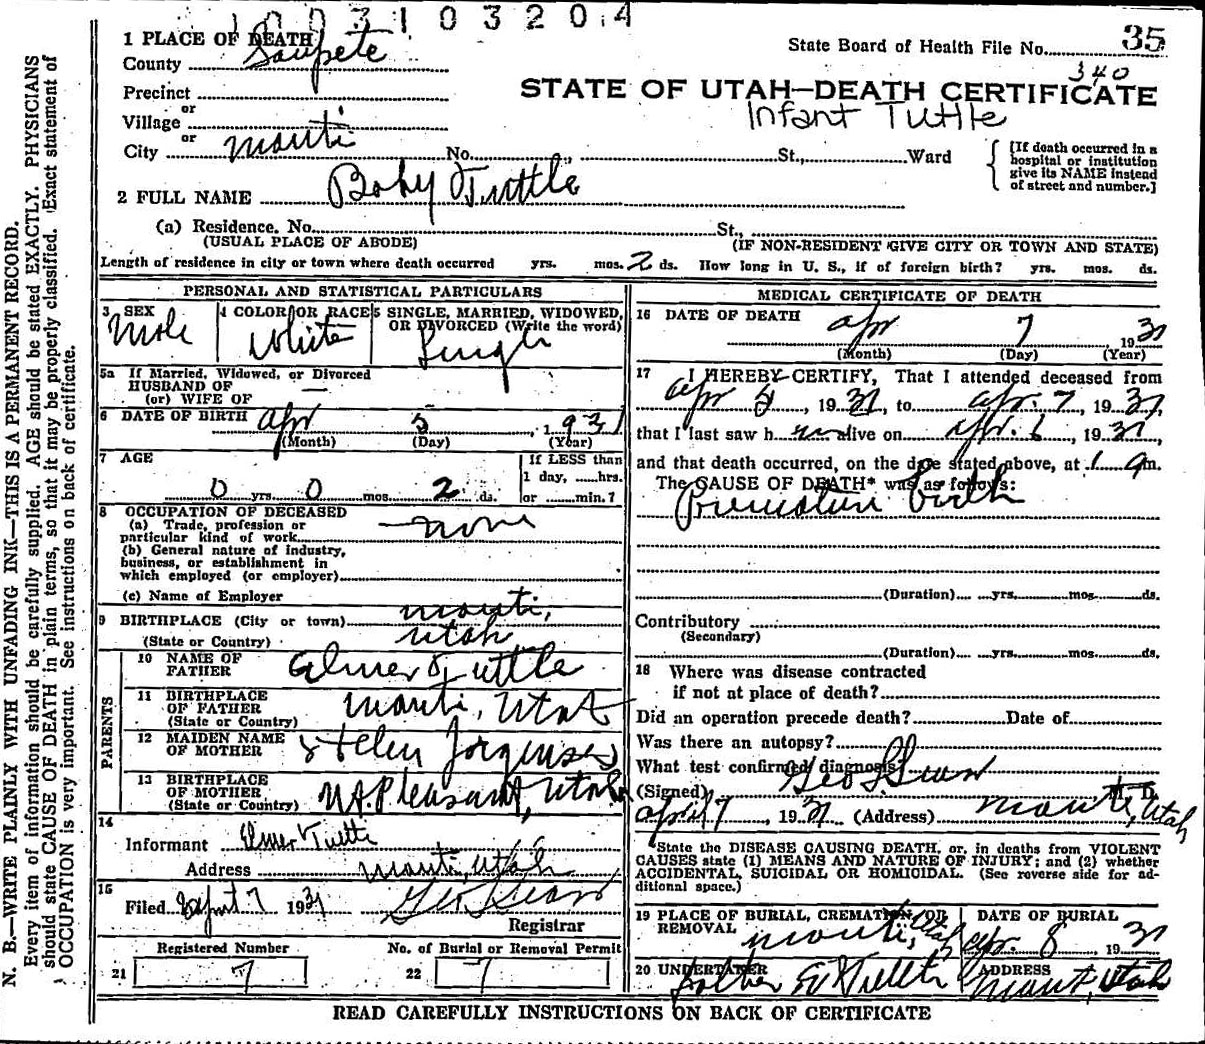 1003103204
35
1 PLACE OF DEATH
State Board of Health File No.
340
County Sanpete
STATE OF UTAH—DEATH CERTIFICATE
Infant Tuttle
Precinct
or
Village
or
City Manti No. St., Ward
[If death occurred in a hospital or institution give its NAME instead of street and number.]
2 FULL NAME Baby Tuttle
(a) Residence. No. St.,
(USUAL PLACE OF ABODE) (IF NON-RESIDENT GIVE CITY OR TOWN AND STATE)
Length of residence in city or town where death occurred yrs. mos. 2 ds. How long in U. S., if of foreign birth? yrs. mos. ds.
PERSONAL AND STATISTICAL PARTICULARS
3 SEX 4 COLOR OR RACE 5 SINGLE, MARRIED, WIDOWED,
OR DIVORCED (Write the word)
Male White Single
5a If Married, Widowed, or Divorced
HUSBAND OF
(or) WIFE OF —
6 DATE OF BIRTH Apr 5, 1931
(Month) (Day) (Year)
7 AGE If LESS than
1 day, hrs.
0 yrs. 0 mos. 2 ds. or min.?
8 OCCUPATION OF DECEASED
(a) Trade, profession or
particular kind of work none
(b) General nature of industry,
business, or establishment in
which employed (or employer)
(c) Name of Employer
9 BIRTHPLACE (City or town) Manti,
(State or Country) Utah
PARENTS
10 NAME OF
FATHER Elmer Tuttle
11 BIRTHPLACE
OF FATHER
(State or Country) Manti, Utah
12 MAIDEN NAME
OF MOTHER Helen Jorgensen
13 BIRTHPLACE
OF MOTHER
(State or Country) Mt. Pleasant, Utah
14
Informant Elmer Tuttle
Address Manti, Utah
15
Filed 7 1931
Registrar
Registered Number No. of Burial or Removal Permit
21 7 22 7
MEDICAL CERTIFICATE OF DEATH
16 DATE OF DEATH
Apr 7 1931
(Month) (Day) (Year)
17 I HEREBY CERTIFY, That I attended deceased from
Apr 5, 1931, to Apr. 7, 1931,
that I last saw h alive on Apr. 6, 1931,
and that death occurred, on the date stated above, at 1 am.
The CAUSE OF DEATH* was as follows:
Premature birth
(Duration) yrs. mos. ds.
Contributory
(Secondary)
(Duration) yrs. mos. ds.
18 Where was disease contracted
if not at place of death?
Did an operation precede death? Date of
Was there an autopsy?
What test confirmed diagnosis?
(Signed) M. D.
April 7, 1931 (Address) Manti, Utah
*State the DISEASE CAUSING DEATH, or, in deaths from VIOLENT
CAUSES state (1) MEANS AND NATURE OF INJURY; and (2) whether
ACCIDENTAL, SUICIDAL OR HOMICIDAL. (See reverse side for ad-
ditional space.)
19 PLACE OF BURIAL, CREMATION, OR DATE OF BURIAL
REMOVAL Manti, Utah Apr. 8, 1931
20 UNDERTAKER ADDRESS
Tuttle Manti, Utah
READ CAREFULLY INSTRUCTIONS ON BACK OF CERTIFICATE
N. B.—WRITE PLAINLY WITH UNFADING INK—THIS IS A PERMANENT RECORD.
Every item of information should be carefully supplied. AGE should be stated EXACTLY. PHYSICIANS
should state CAUSE OF DEATH in plain terms, so that it may be properly classified. Exact statement of
OCCUPATION is very important. See instructions on back of certificate.